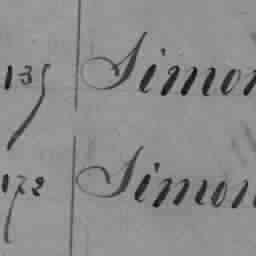 135 Simon
172 Simon